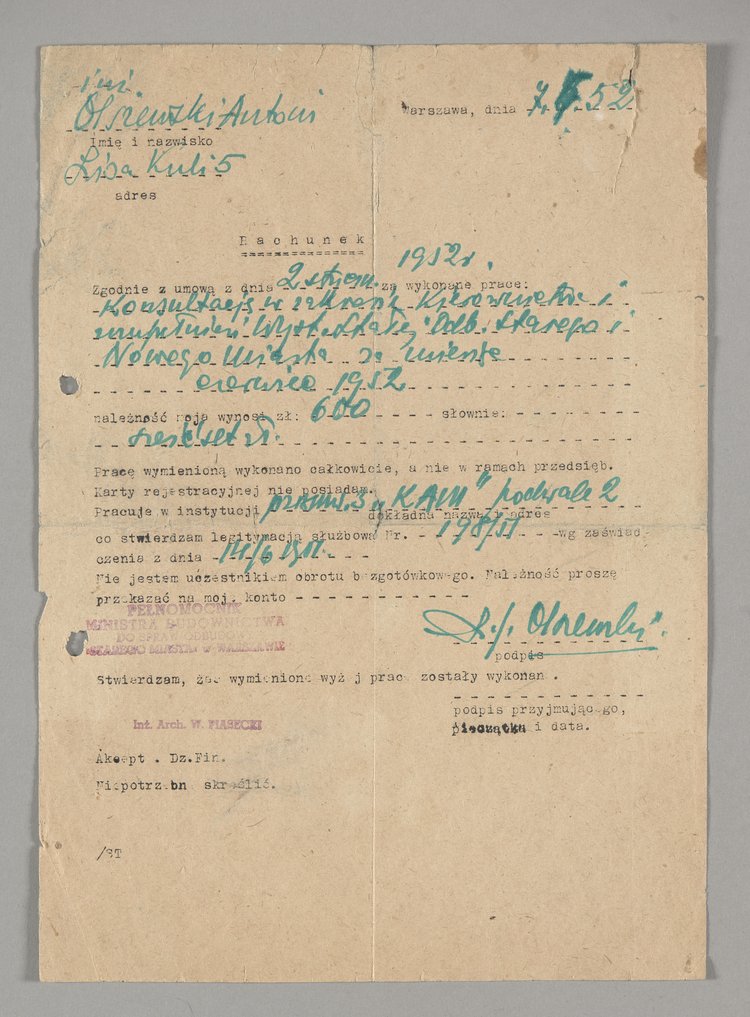 inż.
Olszewski Antoni
Imię i nazwisko
Lisa Kuli 5
adres
Warszawa, dnia 7. 52
Rachunek
Zgodnie z umową z dnia 2 styczn. 1952 r. za wykonane prace:
Konsultacje w zakresie Kierownictwa i
uzupełnień Wyst. Stałej Odb. Starego i
Nowego Miasta za miesiąc
czerwiec 1952
należność moja wynosi zł: 600 słownie:
sześćset zł.
Pracę wymienioną wykonano całkowicie, a nie w ramach przedsięb.
Karty rejestracyjnej nie posiadam.
Pracuję w instytucji "KAM" podwale 2
dokładna nazwa i adres
co stwierdzam legitymacją służbową Nr. 198/51 wg zaświad-
czenia z dnia 14/6 1951.
Nie jestem uczestnikiem obrotu bezgotówkowego. Należność proszę
przekazać na moje konto
PEŁNOMOCNIK
MINISTRA BUDOWNICTWA
DO SPRAW ODBUDOWY
STAREGO MIASTA W WARSZAWIE
A. Olszewski
podpis
Stwierdzam, że wymienione wyżej prace zostały wykonane.
podpis przyjmującego,
pieczątka i data.
Inż. Arch. W. PIASECKI
Akcept. Dz.Fin.
Niepotrzebne skreślić.
/ST